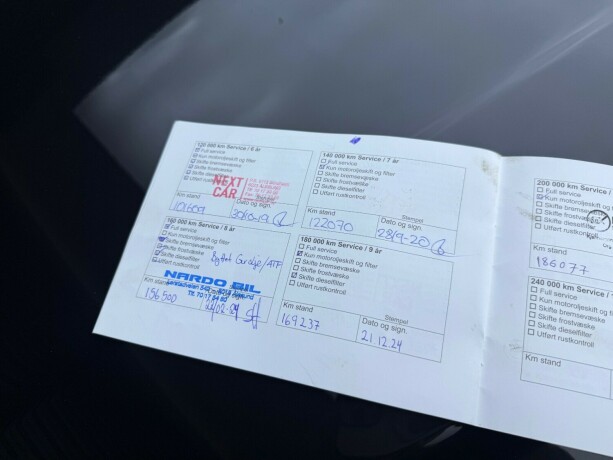 120 000 km Service / 6 år
Full service
Kun motoroljeskift og filter
Skifte bremsevæske
Skifte frostvæske
Skifte dieselfilter
Utført rustkontroll
NEXT
CAR
Km stand
Dato og sign.
101609
140 000 km Service / 7 år
Full service
Kun motoroljeskift og filter
Skifte bremsevæske
Skifte frostvæske
Skifte dieselfilter
Utført rustkontroll
Stempel
Km stand
Dato og sign.
122070
28/9-20
160 000 km Service / 8 år
Full service
Kun motoroljeskift og filter
Skifte bremsevæske
Skifte frostvæske
Skifte dieselfilter
Utført rustkontroll
Byttet Girolje/ATF
NARDO BIL
Km stand
156500
180 000 km Service / 9 år
Full service
Kun motoroljeskift og filter
Skifte bremsevæske
Skifte frostvæske
Skifte dieselfilter
Utført rustkontroll
Stempel
Km stand
Dato og sign.
169237
21.12.24
200 000 km Service /
Full service
Kun motoroljeskift og
Skifte bremsevæske
Skifte frostvæske
Skifte dieselfilter
Utført rustkontroll
Km stand
186077
240 000 km Service /
Full service
Kun motoroljeskift og fi
Skifte bremsevæske
Skifte frostvæske
Skifte dieselfilter
Utført rustkontroll
Km stand